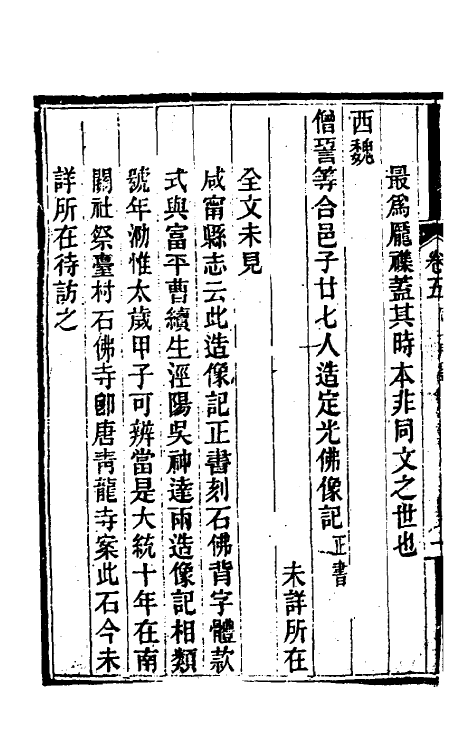 最爲厖襍蓋其時本非同文之世也
西魏
僧晉等合邑子廿七人造定光佛像記正書
未詳所在
全文未見
咸甯縣志云此造像記正書刻石佛背字體款
式與富平曹續生涇陽吳神達兩造像記相類
號年泐惟太歲甲子可辨當是大統十年在南
關社祭臺村石佛寺卽唐靑龍寺案此石今未
詳所在待訪之
卷五